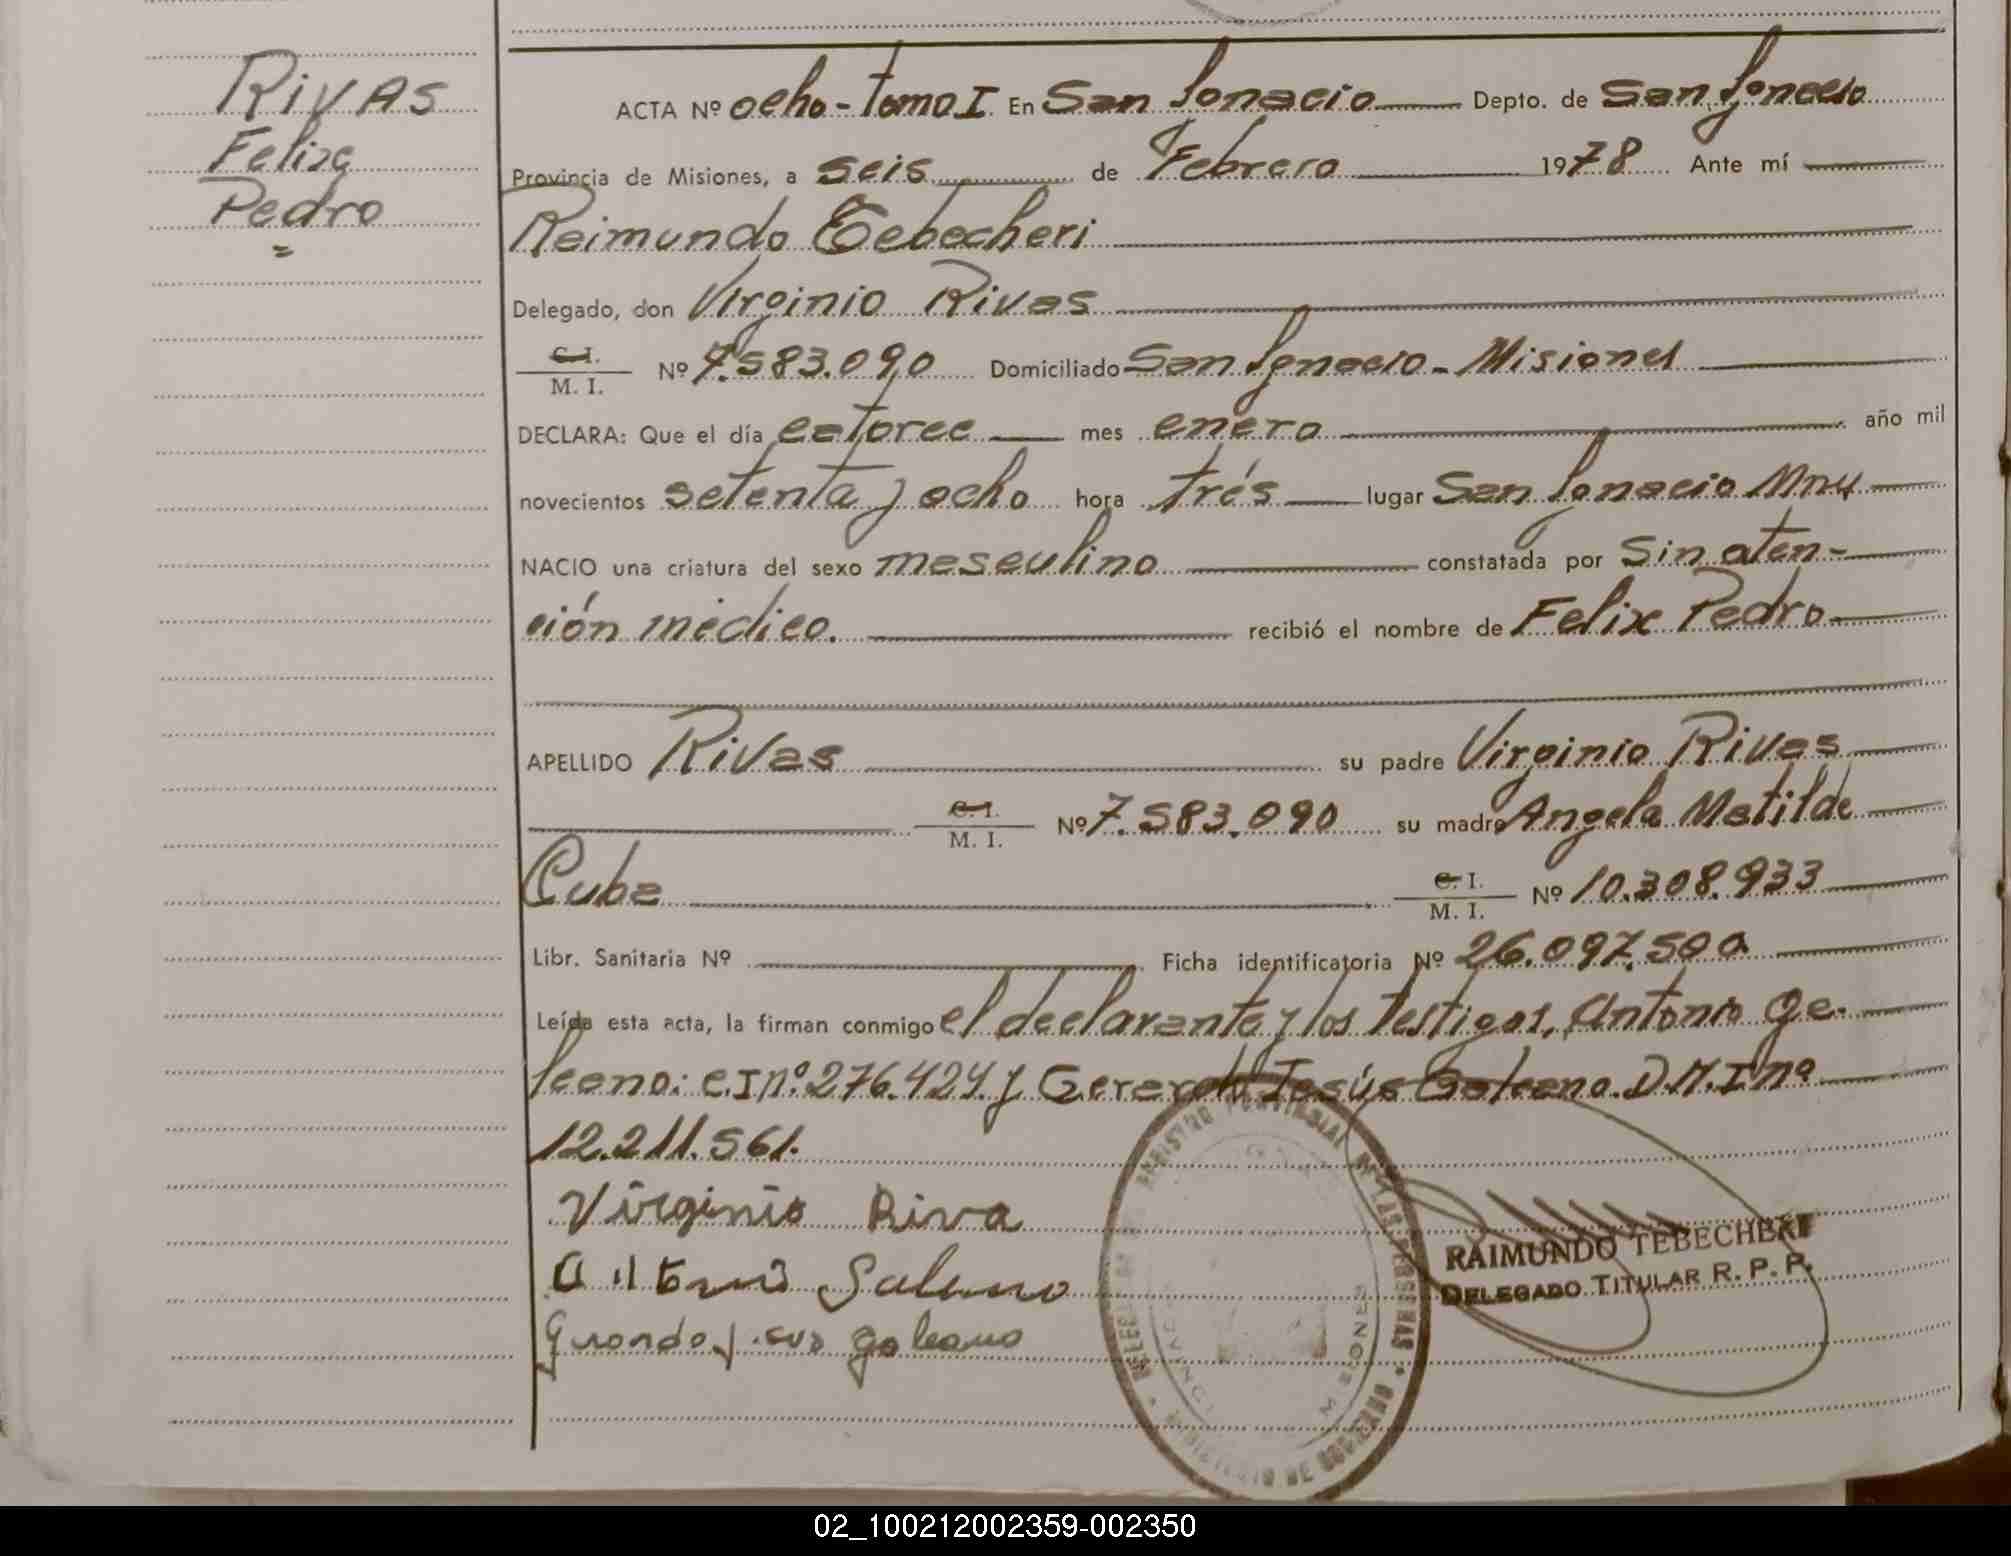 RIVAS
Felix
Pedro
=
ACTA Nº ocho - tomo I. En San Ignacio Depto. de San Ignacio
Provincia de Misiones, a seis de Febrero 1978 Ante mí
Raimundo Tebecheri
Delegado, don Virginio Rivas
C. I.
M. I. Nº 7.583.090 Domiciliado San Ignacio - Misiones
DECLARA: Que el día catorce mes enero año mil
novecientos setenta y ocho hora trés lugar San Ignacio Mnes
NACIO una criatura del sexo masculino constatada por Sin aten-
ción médica. recibió el nombre de Felix Pedro
APELLIDO Rivas su padre Virginio Rivas
C. I.
M. I. Nº 7.583.090 su madre Angela Matilde
Cuba C. I.
M. I. Nº 10.308.933
Libr. Sanitaria Nº Ficha identificatoria Nº 26.097.500
Leída esta acta, la firman conmigo el declarante y los testigos, Antonio Ga-
leano: C.I nº. 276.424. y Gerardo Jesús Galeano. D.M.I nº
12.211.561.
Virginio Riva
Galeano
REGISTRO PROVINCIAL DE LAS PERSONAS
MISIONES
MINISTERIO DE GOBIERNO
RAIMUNDO TEBECHERI
DELEGADO TITULAR R. P. P.
02_100212002359-002350